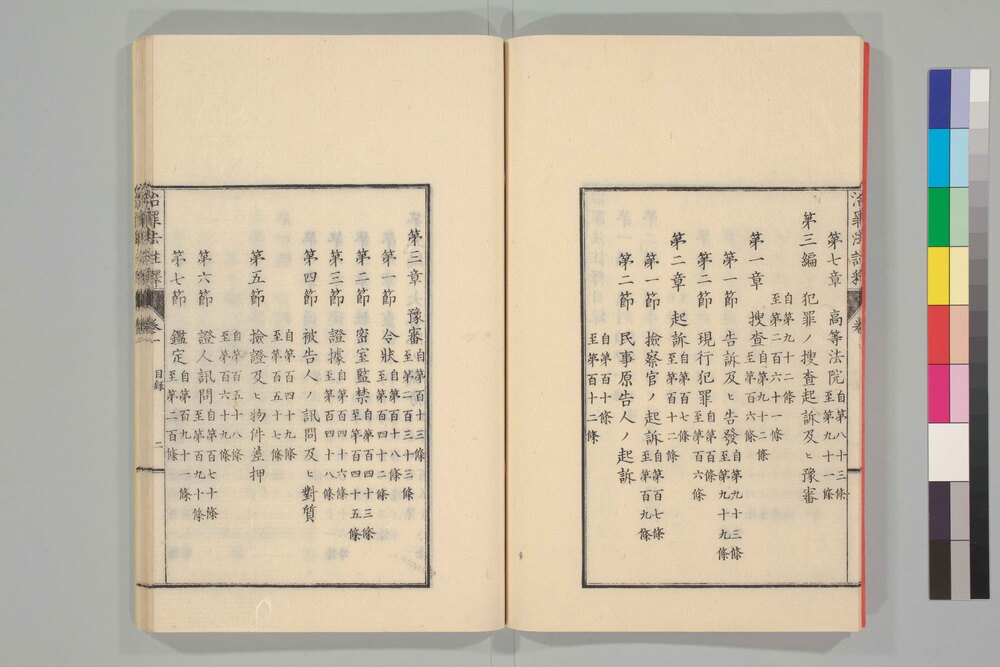 治罪法註釋 卷
第七章 高等法院 自第八十三條
至第九十一條
第三編 犯罪ノ搜査起訴及ヒ豫審
自第九十二條
至第二百六十一條
第一章 搜査 自第九十二條
至第百六條
第一節 告訴及ヒ告發 自第九十三條
至第九十九條
第二節 現行犯罪 自第百條
至第百六條
第二章 起訴 自第百七條
至第百十二條
第一節 檢察官ノ起訴 自第百七條
至第百九條
第二節 民事原告人ノ起訴
自第百十條
至第百十二條
第三章 豫審 自第百十三條
至第二百十三條
第一節 令狀 自第百十八條
至第百四十二條
第二節 密室監禁 自第百四十三條
至第百四十五條
第三節 證據 自第百四十六條
至第百四十八條
第四節 被告人ノ訊問及ヒ對質
自第百四十九條
至第百五十七條
第五節 檢證及ヒ物件差押
自第百五十八條
至第百六十九條
第六節 證人訊問 自第百七十條
至第百九十條
第七節 鑑定 自第百九十一條
至第二百條
治罪法註釋 卷一 目録 二